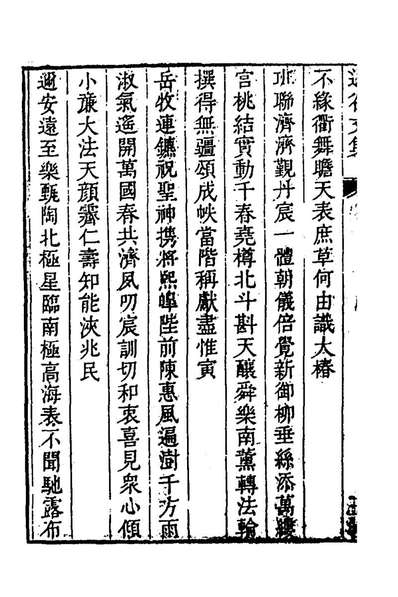 不緣衢舞瞻天表庶草何由識大椿
班聯濟濟觀丹宸一體朝儀倍覺新御柳垂絲添萬縷
宮桃結實動千春堯樽北斗斟天釀舜樂南薰轉法輪
撰得無疆頌成帙當階稱獻盡惟寅
岳牧連鑣祝聖神携將熙皥陛前陳惠風遍澍千方雨
淑氣遥開萬國春共濟夙叨宸訓切和衷喜見衆心傾
小廉大法天顔霽仁壽知能浹兆民
邇安遠至樂甄陶北極星臨南極高海表不聞馳露布